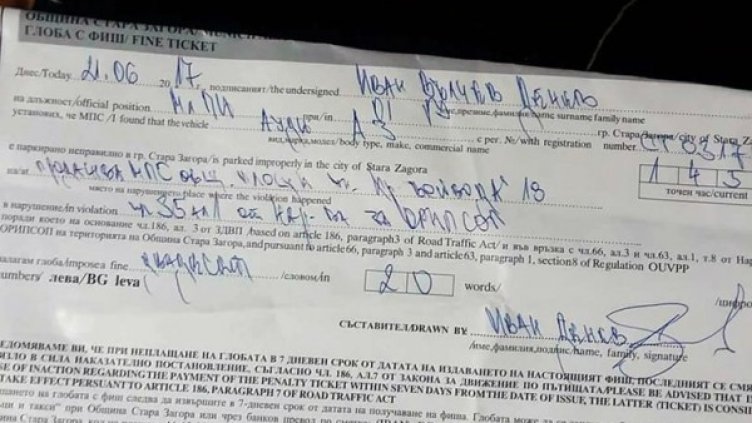 ОБЩИНА СТАРА ЗАГОРА/
ГЛОБА С ФИШ/ FINE TICKET
Днес/Today 21.06 2017 г. подписаният/the undersigned ИВАН ВЪЛЧЕВ ДЕНЕВ
/име, презиме, фамилия/name surname family name
на длъжност/official position при/in гр. Стара Загора/city of Stara
установих, че МПС /I found that the vehicle АУДИ А3 с рег. №/with registration number
вид, марка, модел/body type, make, commercial name
е паркирано неправилно в гр. Стара Загора/is parked improperly in the city of Stara Zagora 1 4 5
на/at ПРОДАЖБА МПС ОБЩ. ПЛОЩИ 18 точен час/current
място на нарушението/place where the violation happened
в нарушение/in violation чл 35 ал 1 от за ОРИПСОП
поради което на основание чл.186, ал. 3 от ЗДвП /based on article 186, paragraph3 of Road Traffic Act/ и във връзка с чл.66, ал.3 и чл.63, ал.1, т.8 от
ОРИПСОП на територията на Община Стара Загора,and pursuant to article66, paragraph 3 and article63, paragraph 1, section8 of Regulation OUVPP
налагам глоба/imposea fine ДВАДЕСЕТ /словом/in words/ 20
numbers/ лева/BG leva
СЪСТАВИТЕЛ/DRAWN BY ИВАН ДЕНЕВ
/име,фамилия,подпис/name, family, signature
ВЕДОМЯВАМЕ ВИ, ЧЕ ПРИ НЕПЛАЩАНЕ НА ГЛОБАТА В 7 ДНЕВЕН СРОК ОТ ДАТАТА НА ИЗДАВАНЕТО НА НАСТОЯЩИЯТ ФИШ, ПОСЛЕДНИЯТ СЕ
ВЛЯЗЛО В СИЛА НАКАЗАТЕЛНО ПОСТАНОВЛЕНИЕ, СЪГЛАСНО ЧЛ. 186, АЛ.7 ОТ ЗАКОНА ЗА ДВИЖЕНИЕ ПО ПЪТИЩАТА/PLEASE BE ADVISED THAT
SE OF INACTION REGARDING THE PAYMENT OF THE PENALTY TICKET WITHIN SEVEN DAYS FROM THE DATE OF ISSUE, THE LATTER (TICKET) IS
TAKE EFFECT PERSUANT TO ARTICLE 186, PARAGRAPH 7 OF ROAD TRAFFIC ACT
на глобата с фиш следва да извършите в 7-дневен срок от датата на получаване на фиша. Глобата може да
и такси" при Община Стара Загора или чрез банков превод по